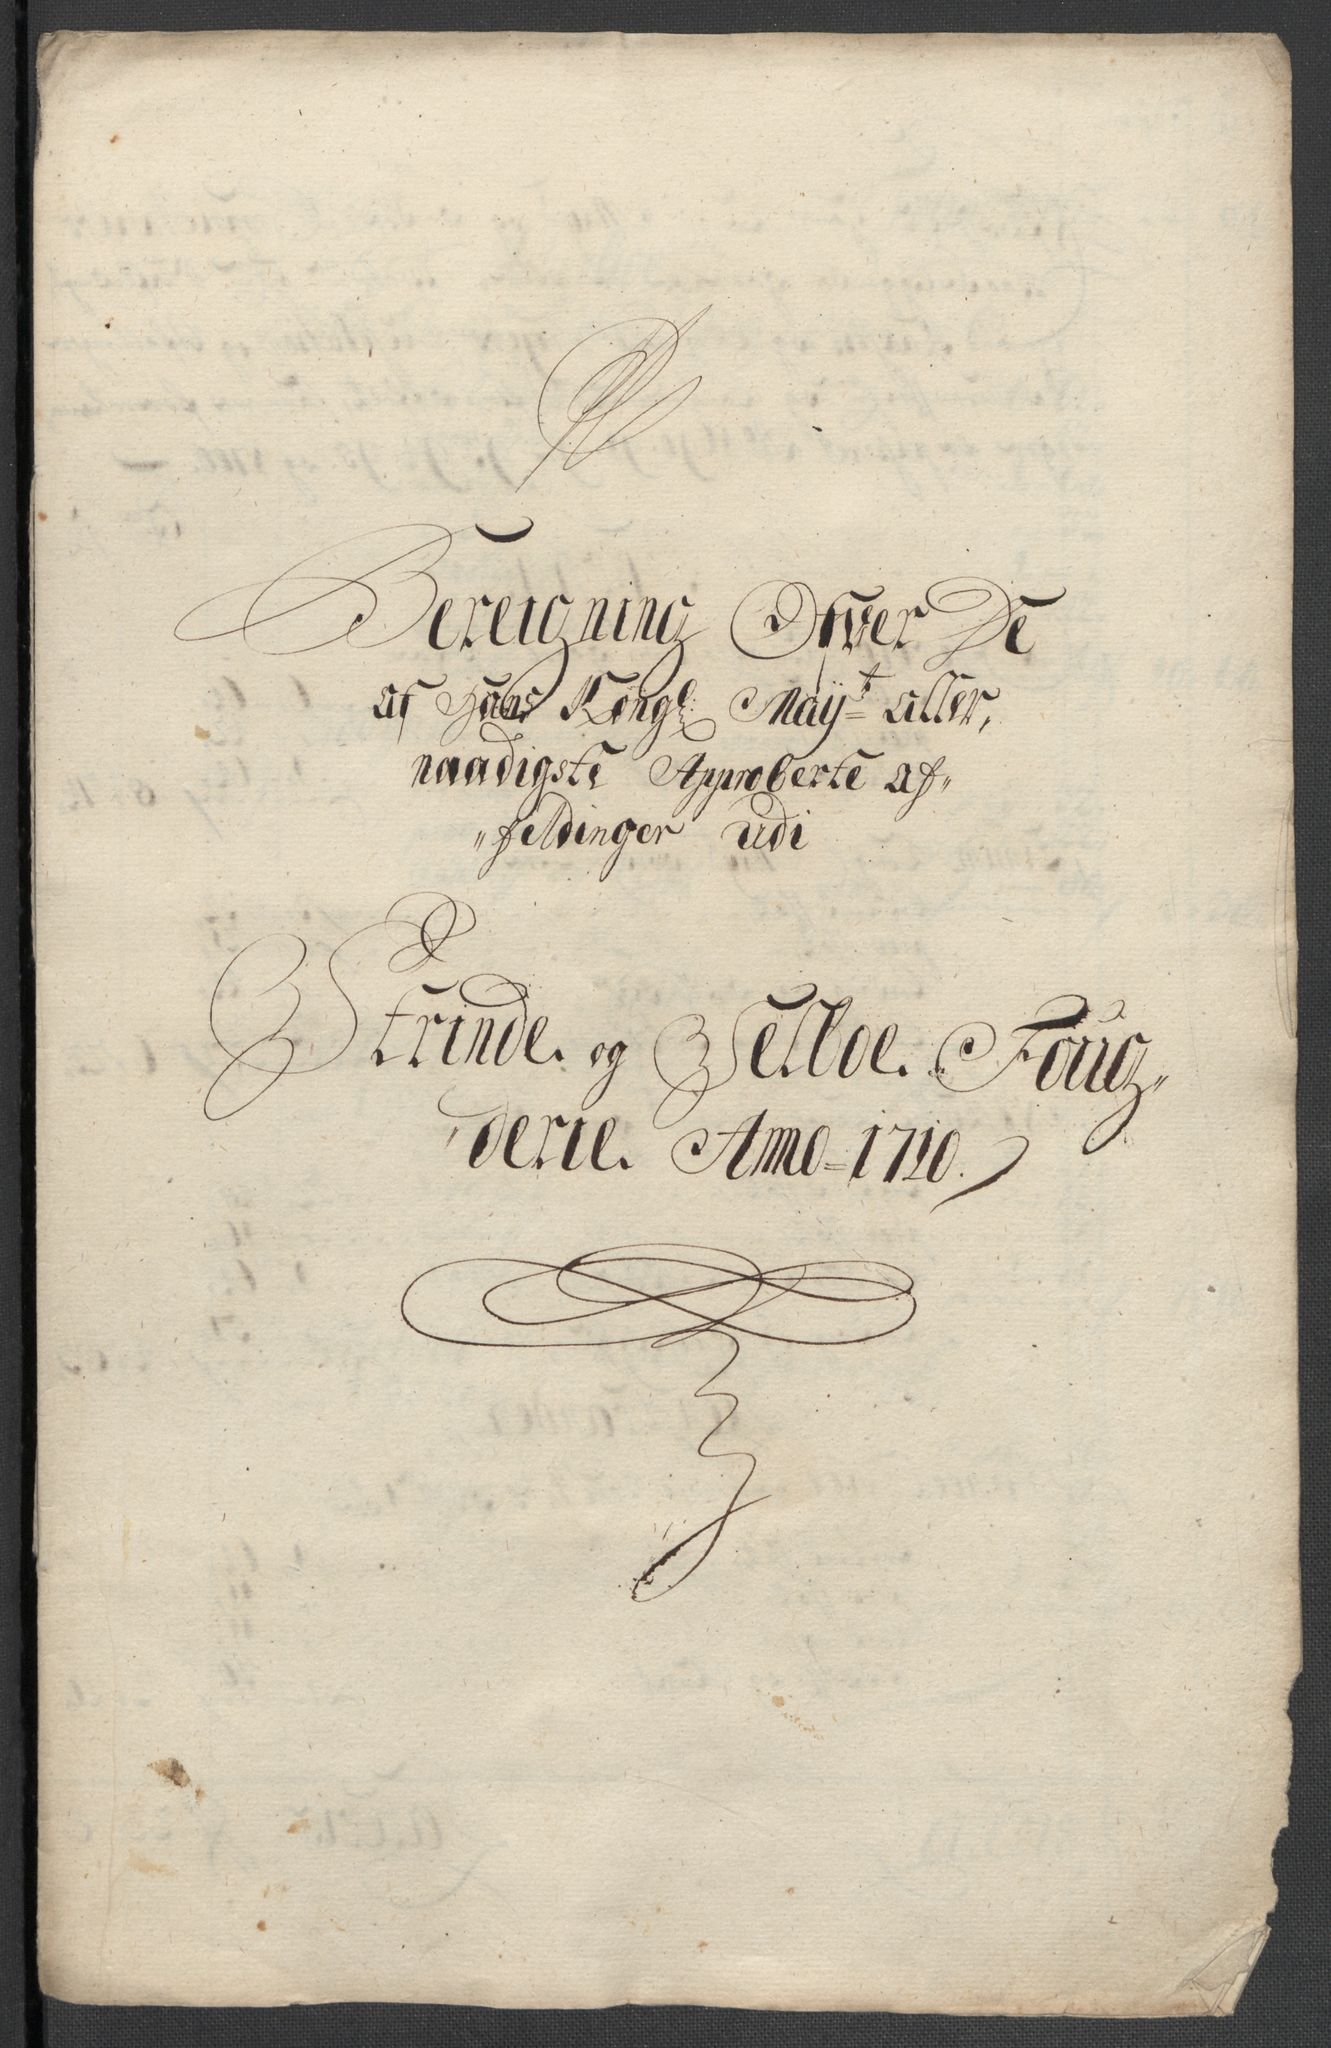 Bereigning Ofver De
af Hans Kongl: Mayt: aller,
naadigste Approberte af„
„feldinger udi
Strinde. og Selboe. Foug„
„derie. Anno = 1710.